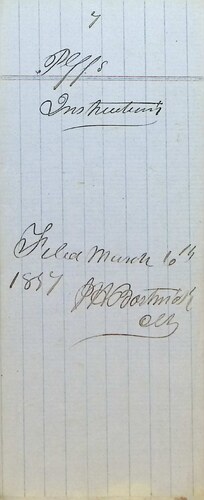 7
Plffs
Instructions
Filed March 10th
1857
Bostwick
Clk